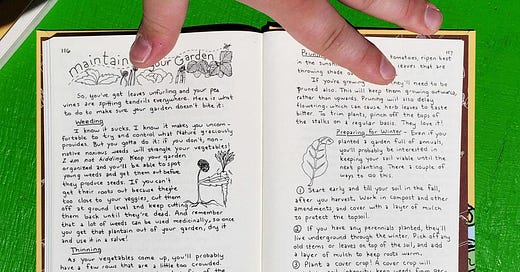 116
maintain your Garden
So, you've got leaves unfurling and your pea
vines are spitting tendrils everywhere. Here is what
to do to make sure your garden doesn't bite it:
Weeding
I know it sucks. I know it makes you uncom-
fortable to try and control what Nature graciously
provides. But you gotta do it: if you don't, non-
native noxious weeds will strangle your vegetables!
I am not kidding. Keep your garden
organized and you'll be able to spot
young weeds and get them out before
they produce seeds. If you can't
get their roots out because they're
too close to your veggies, cut them
off at ground level and keep cutting
them back until they're dead. And remember
that a lot of weeds can be used medicinally, so once
you get that plantain out of your garden, dry it
and use it in a salve!
Thinning
As your vegetables come up, you'll probably
have a few rows that are a little too crowded.
117
Pruning
tomatoes, ripen best
in the sunshine
leaves that are
throwing shade
If you're growing
they'll need to be
pruned also. This will keep them growing outwards,
rather than upwards. Pruning will also delay
flowering, which can cause herb leaves to taste
bitter. To trim plants, pinch off the tops of
the stalks on a regular basis. They love it!
Preparing for Winter - Even if you
planted a garden full of annuals,
you'll probably be interested in
keeping your soil viable until the
next planting. There a couple of
ways to do this.
① Start early and till your soil in the fall,
after you harvest. Work in compost and other
amendments, and cover with a layer of mulch
to protect the topsoil.
② If you have any perennials planted, they'll
live underground through the winter. Pick off any
old stems or leaves on top of the soil, and add
a layer of mulch to keep roots warm.
③ Plant a cover crop! A cover crop will